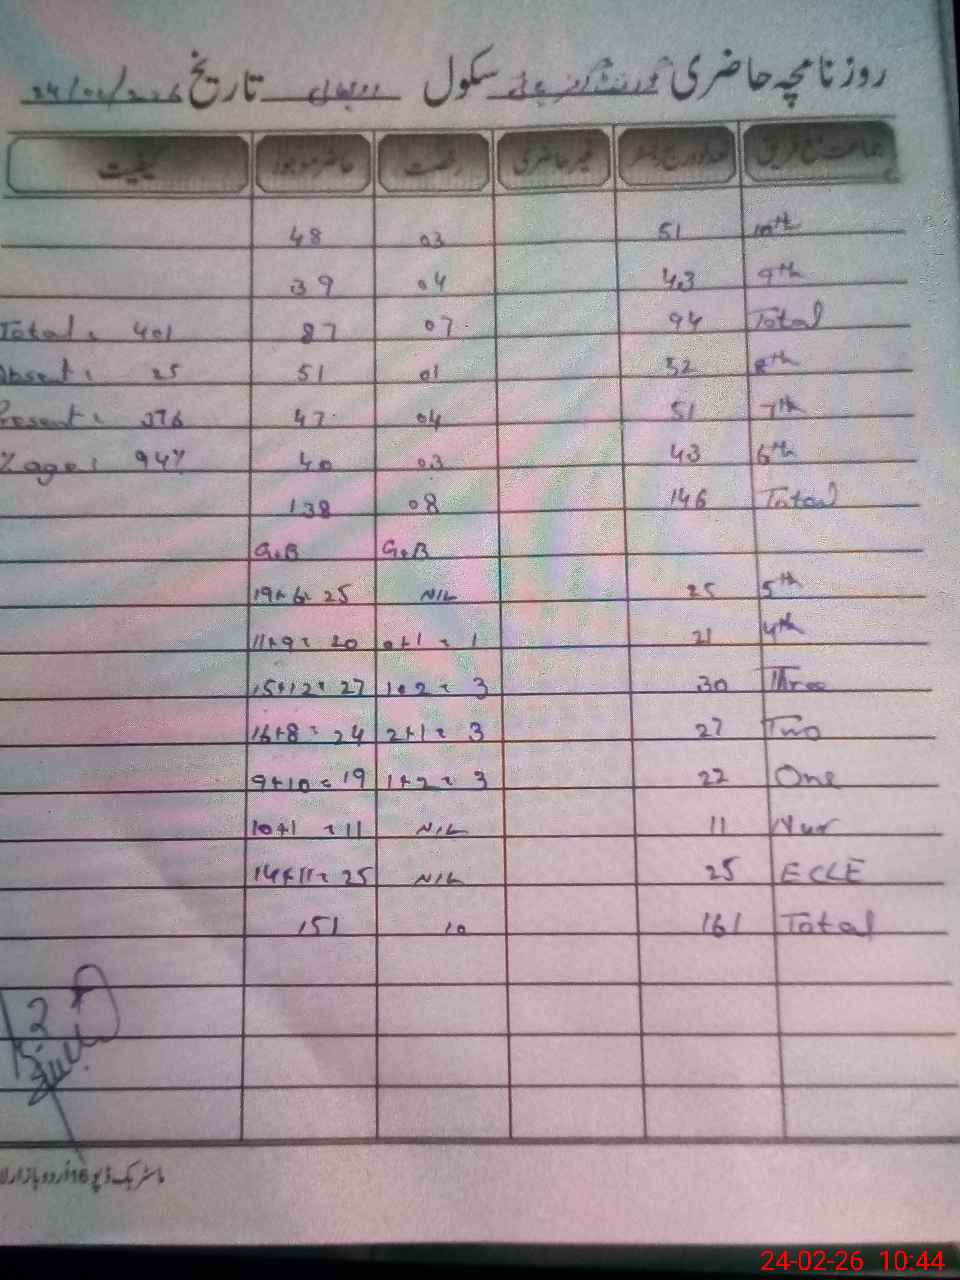 روزنامچہ حاضری گورنمنٹ گرلز ہائی سکول تاریخ 24/02/2026
جماعت مع فریق تعداد درج رجسٹر غیر حاضری رخصت حاضر موجود کیفیت
10th 51 03 48
9th 43 04 39
Total 94 07 87 Total: 401
8th 52 01 51 Absent: 25
7th 51 04 47 Present: 376
6th 43 03 40 %age: 94%
Total 146 08 138
G+B G+B
5th 25 NIL 19+6=25
4th 21 0+1=1 11+9=20
Three 30 1+2=3 15+12=27
Two 27 2+1=3 16+8=24
One 22 1+2=3 9+10=19
Nur 11 NIL 10+1=11
ECCE 25 NIL 14+11=25
Total 161 10 151
ماسٹر بک ڈپو 16 اردو بازار
24-02-26 10:44